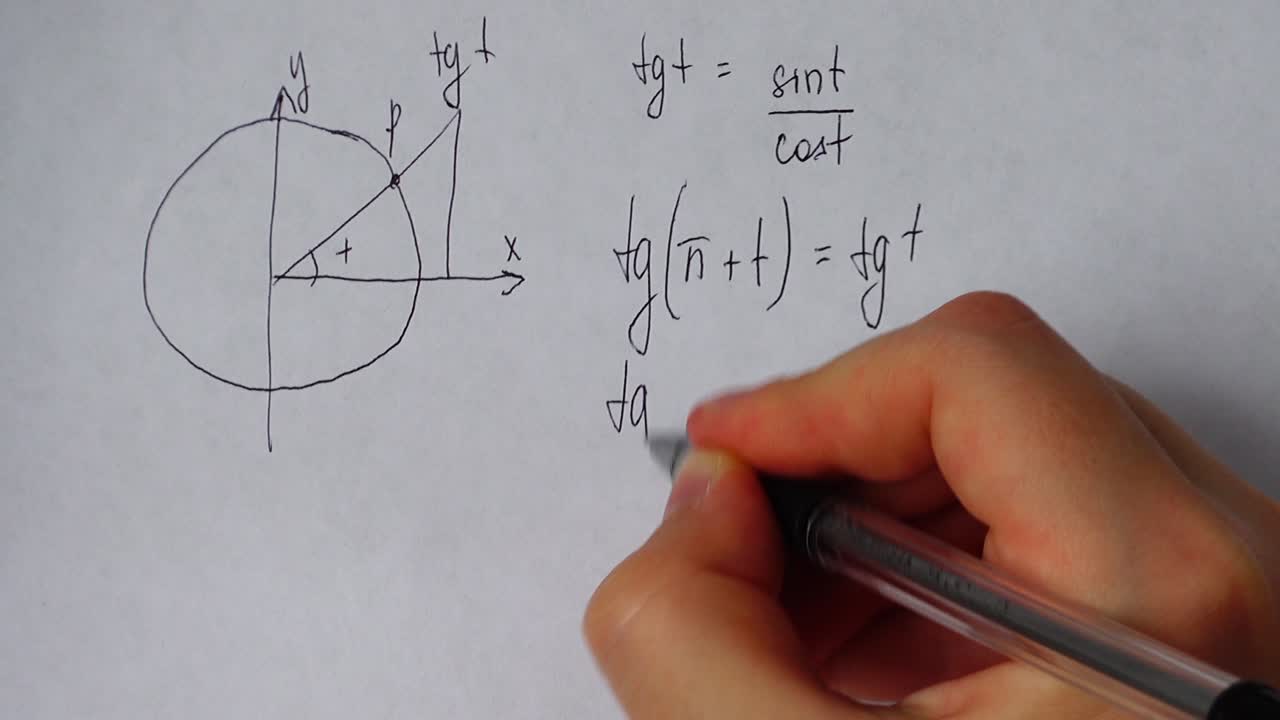 y
tg t
P
t
x
tg t = sin t / cos t
tg(π + t) = tg t
tg